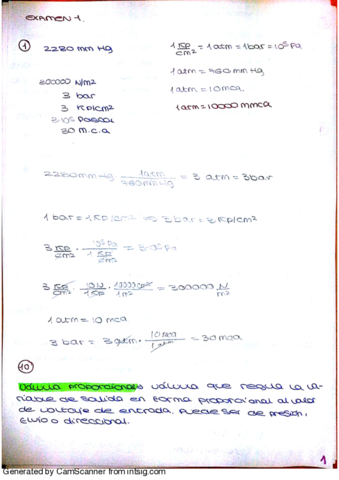 EXAMEN 1.
① 2280 mm Hg
1 KP/cm² = 1 atm = 1 bar = 10⁵ Pa
1 atm = 760 mm Hg
1 atm = 10 mca
1 atm = 10000 mmca
300000 N/m²
3 bar
3 KP/cm²
3·10⁵ Pascal
30 m.c.a
2280 mm Hg · 1 atm / 760 mm Hg = 3 atm = 3 bar
1 bar = 1 KP/cm² ⇒ 3 bar = 3 KP/cm²
3 KP/cm² · 10⁵ Pa / 1 KP/cm² = 3·10⁵ Pa
3 KP/cm² · 10 N / 1 KP · 10000 cm² / 1 m² = 300000 N/m²
1 atm = 10 mca
3 bar = 3 atm · 10 mca / 1 atm = 30 mca
⑩
Válvula proporcional: válvula que regula la va-
riable de salida en forma proporcional al valor
de voltaje de entrada. Puede ser de presión,
flujo o direccional.
1
Generated by CamScanner from intsig.com